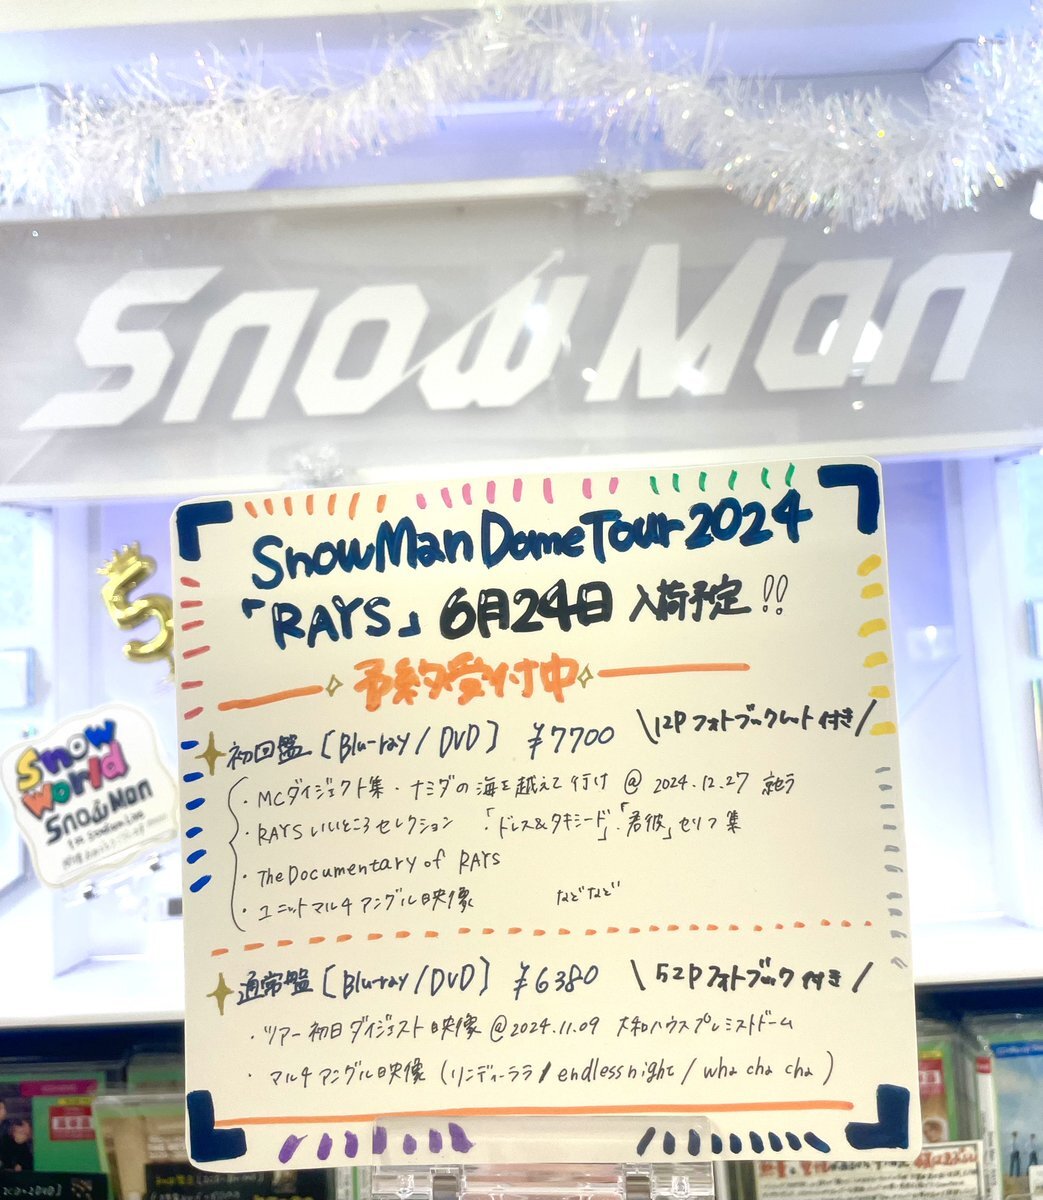 Snow Man
Snow Man Dome Tour 2024
「RAYS」 6月24日 入荷予定!!
予約受付中
初回盤 [Blu-ray / DVD] ¥7700 \12Pフォトブックレット付き/
・MCダイジェクト集・ナミダの海を越えて行け @ 2024.12.27 京セラ
・RAYSいいところセレクション 「ドレス&タキシード」・「君彼」セリフ集
・The Documentary of RAYS
・ユニットマルチアングル映像 などなど
通常盤 [Blu-ray/DVD] ¥6380 \52Pフォトブック付き/
・ツアー初日ダイジェスト映像@2024.11.09 大和ハウスプレミストドーム
・マルチアングル映像 (リンディーララ/endless night/wha cha cha)
5
Snow
World
Snow Man